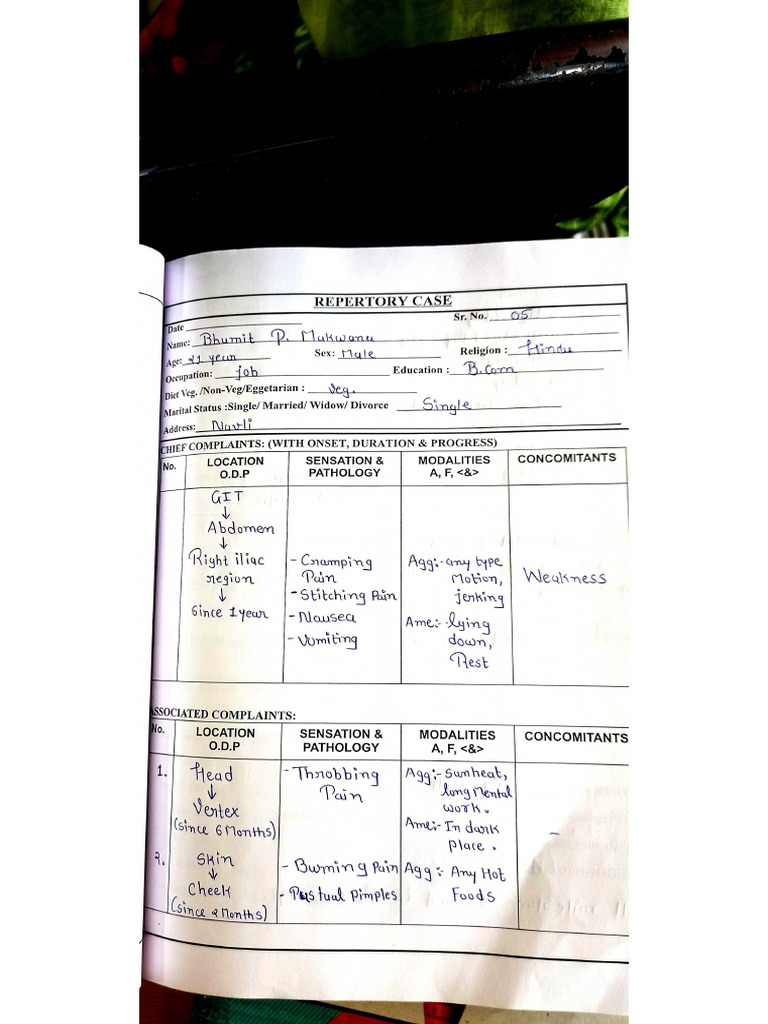 REPERTORY CASE
Sr. No. 05
Date
Name: Bhumit P. Makwana
Age: 21 year Sex: Male Religion : Hindu
Occupation: job Education : B.Com
Diet Veg. /Non-Veg/Eggetarian : Veg.
Marital Status :Single/ Married/ Widow/ Divorce Single
Address: Navli
CHIEF COMPLAINTS: (WITH ONSET, DURATION & PROGRESS)
No. LOCATION SENSATION & MODALITIES CONCOMITANTS
O.D.P PATHOLOGY A, F, <&>
GIT
↓
Abdomen
↓
Right iliac - Cramping Agg:- any type
region Pain Motion, Weakness
↓ - Stitching Pain jerking
Since 1 year - Nausea Ame:- lying
- Vomiting down,
Rest
ASSOCIATED COMPLAINTS:
No. LOCATION SENSATION & MODALITIES CONCOMITANTS
O.D.P PATHOLOGY A, F, <&>
1. Head - Throbbing Agg:- Sunheat,
↓ Pain long Mental
Vertex work.
(Since 6 Months) Ame:- In dark -
place.
2. Skin - Burning Pain Agg:- Any Hot
↓
Cheek - Pustual Pimples Foods
(Since 2 Months)